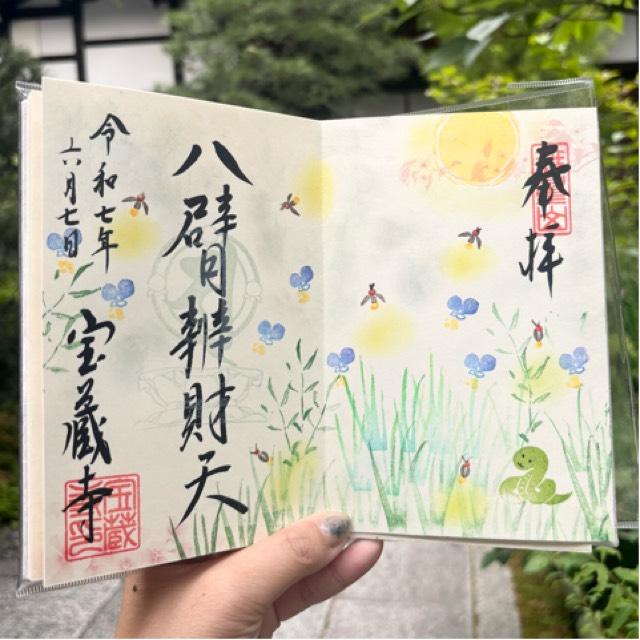 奉拝
八臂辨財天
令和七年
六月七日
宝蔵寺